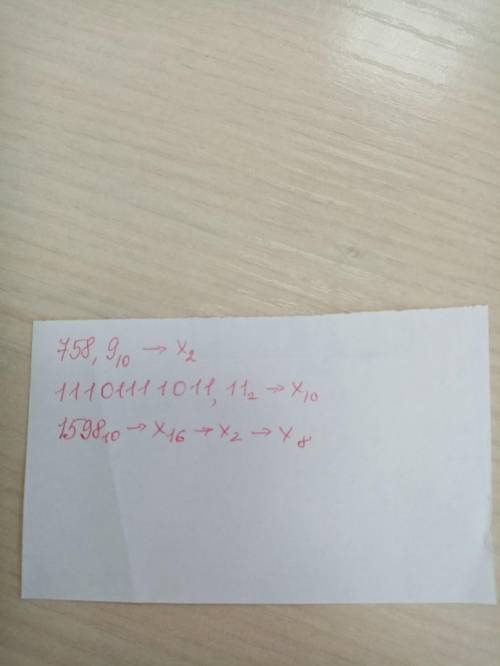 758,9₁₀ → x₂
11101111011,11₂ → x₁₀
1598₁₀ → x₁₆ → x₂ → x₈